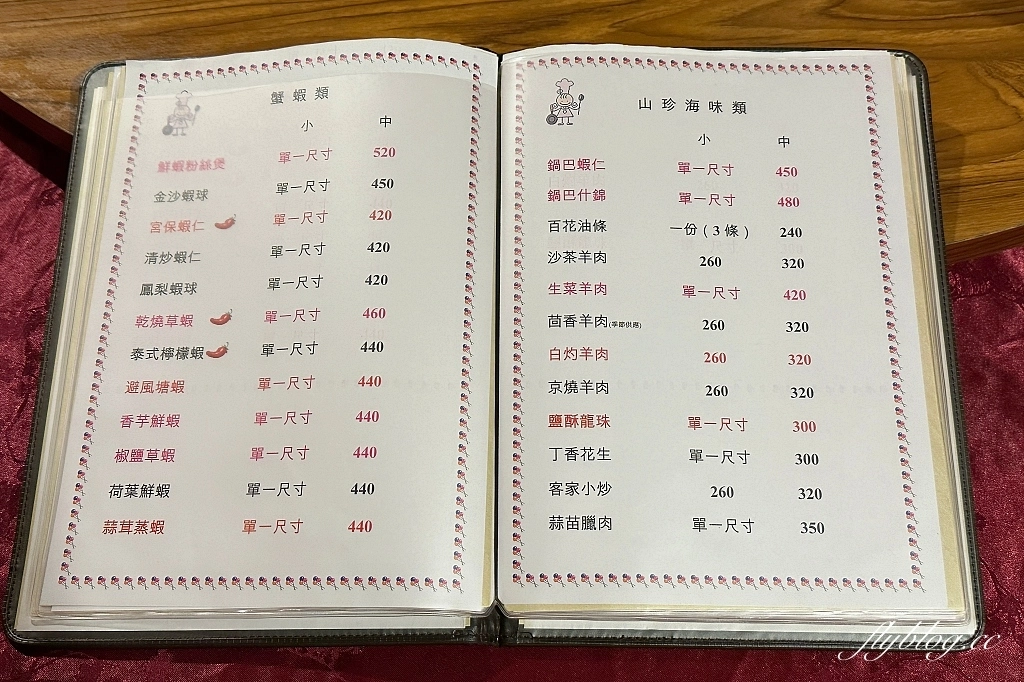 蟹蝦類
小 中
鮮蝦粉絲煲 單一尺寸 520
金沙蝦球 單一尺寸 450
宮保蝦仁 單一尺寸 420
清炒蝦仁 單一尺寸 420
鳳梨蝦球 單一尺寸 420
乾燒草蝦 單一尺寸 460
泰式檸檬蝦 單一尺寸 440
避風塘蝦 單一尺寸 440
香芋鮮蝦 單一尺寸 440
椒鹽草蝦 單一尺寸 440
荷葉鮮蝦 單一尺寸 440
蒜茸蒸蝦 單一尺寸 440
山珍海味類
小 中
鍋巴蝦仁 單一尺寸 450
鍋巴什錦 單一尺寸 480
百花油條 一份（3條） 240
沙茶羊肉 260 320
生菜羊肉 單一尺寸 420
茴香羊肉(季節供應) 260 320
白灼羊肉 260 320
京燒羊肉 260 320
鹽酥龍珠 單一尺寸 300
丁香花生 單一尺寸 300
客家小炒 260 320
蒜苗臘肉 單一尺寸 350
flyblog.cc